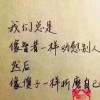 我们总是
像智者一样劝慰别人
然后
像傻子一样折磨自己